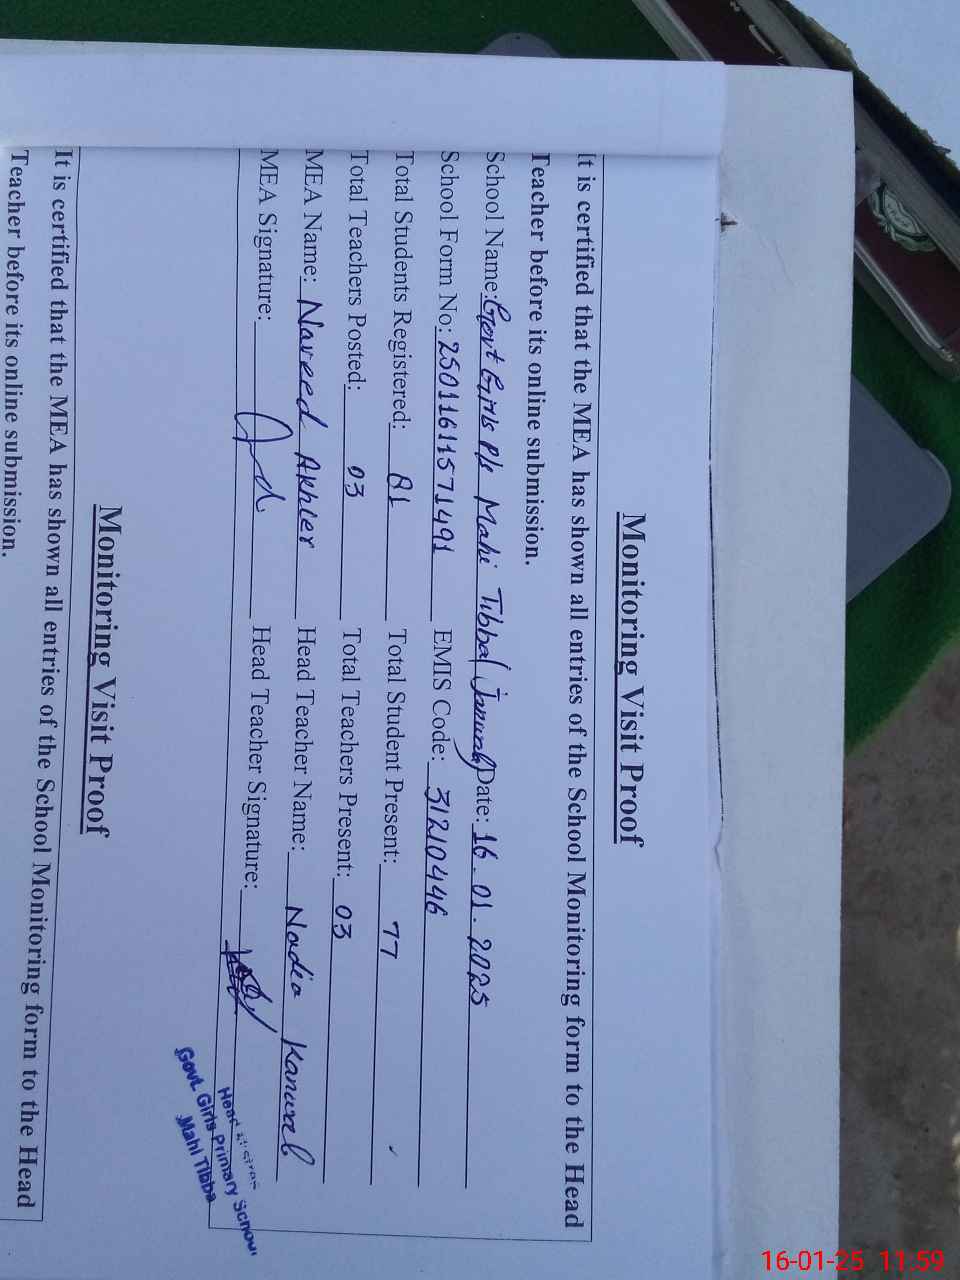 Monitoring Visit Proof
It is certified that the MEA has shown all entries of the School Monitoring form to the Head
Teacher before its online submission.
School Name: Govt Girls P/s Mahi Tibba( Date: 16.01.2025
School Form No: 25011611571491 EMIS Code: 31210446
Total Students Registered: 81 Total Student Present: 77
Total Teachers Posted: 03 Total Teachers Present: 03
MEA Name: Naveed Akhter Head Teacher Name: Nadia Kanwal
MEA Signature: Head Teacher Signature:
Head
Govt. Girls Primary School
Mahi Tibba
Monitoring Visit Proof
It is certified that the MEA has shown all entries of the School Monitoring form to the Head
Teacher before its online submission.
16-01-25 11.59